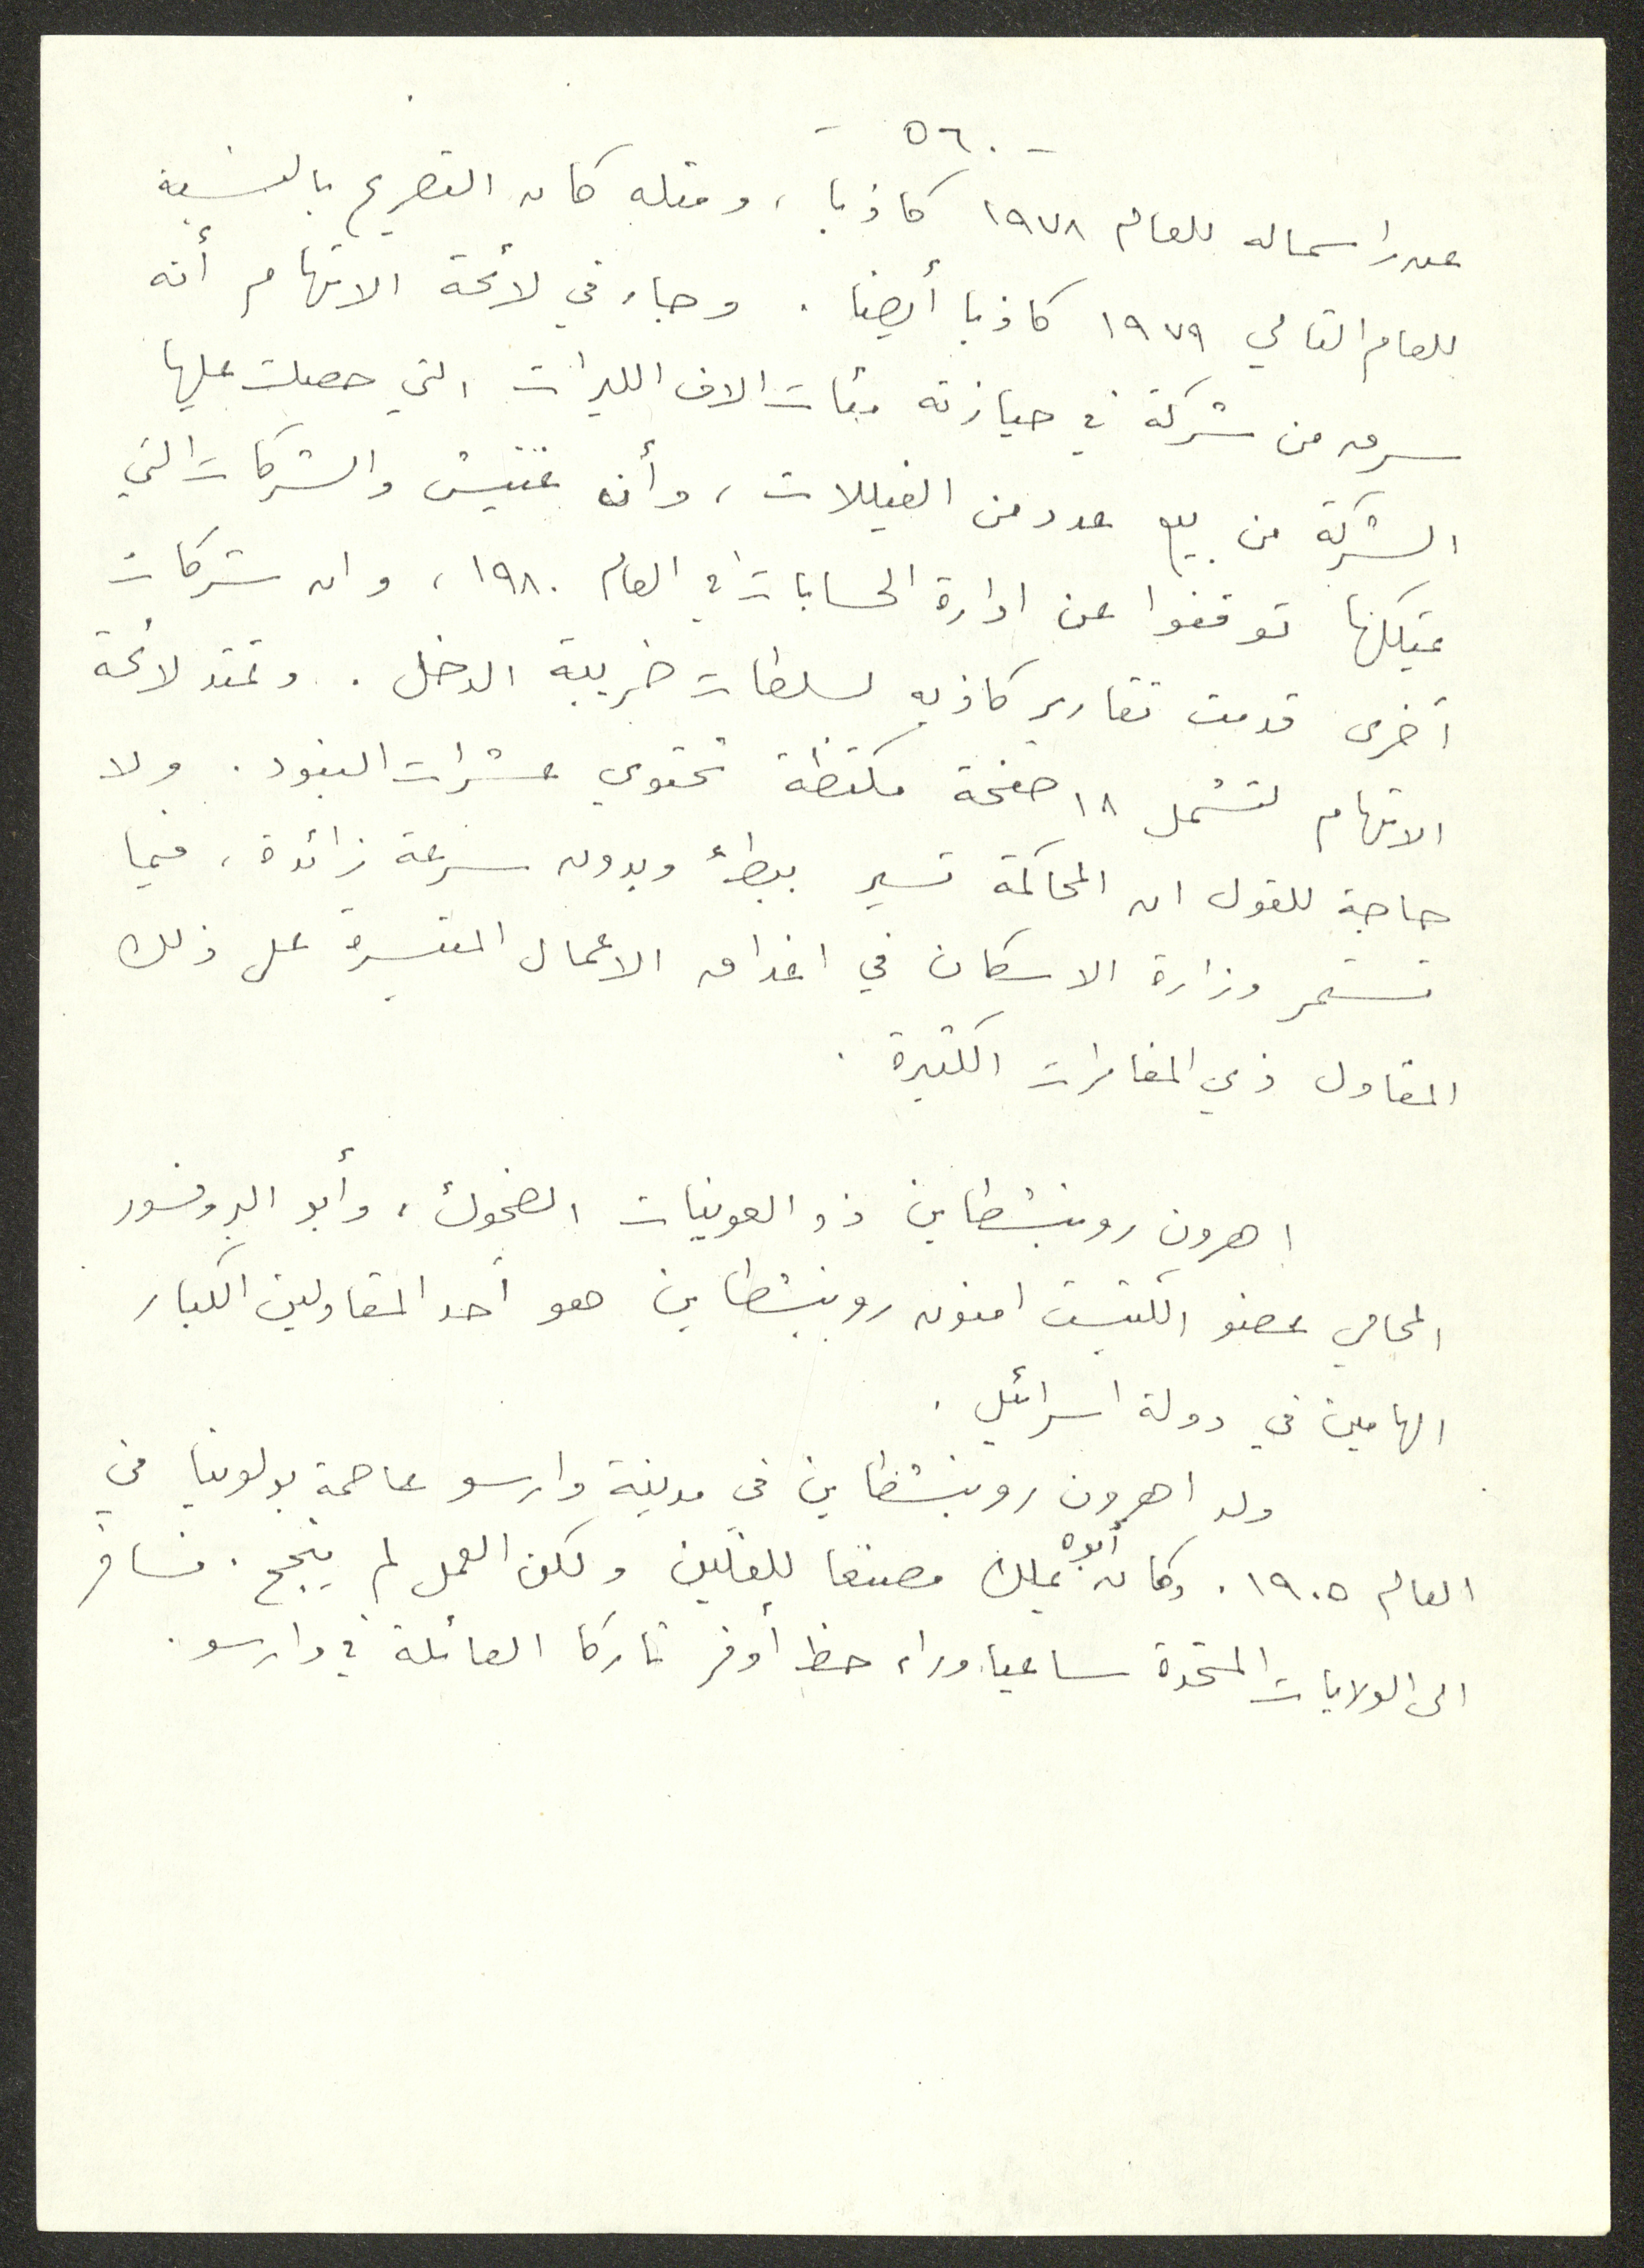 - ٥٦٠ -
عن راسماله للعام ١٩٧٨ كاذبا ، ومثله كان التصريح بالنسبة
للعام التالي ١٩٧٩ كاذبا أيضا . وجاء في لائحة الاتهام أنه
سرق من شركة في حيازته مئات الاف الليرات التي حصلت عليها
الشركة من بيع عدد من الفيللات ، وأن والشركات التي
يمتلكها توقفوا عن ادارة الحسابات في العام ١٩٨٠ ، وان شركات
أخرى قدمت تقارير كاذبه لسلطات ضريبة الدخل . وتمتد لائحة
الاتهام لتشمل ١٨ صفحة مكتظة تحتوي عشرات البنود . ولا
حاجة للقول ان المحاكمة تسير ببطئ وبدون سرعة زائدة ، فيما
تستمر وزارة الاسكان في اغداق الاعمال المتيسرة على ذلك
المقاول ذي المغامرات الكثيرة .
اهرون روبنشطاين ذو العوينات الضحوك ، وأبو البروفسور
المحامي عضو الكنيست امنون روبنشطاين هو أحد المقاولين الكبار
الهامين في دولة اسرائيل .
ولد اهرون روبنشطاين في مدينة وارسو عاصمة بولونيا في
العام ١٩٠٥ . وكان أبوه يملك مصنعا للفلين ولكن العمل لم ينجح . فسافر
الى الولايات المتحدة ساعيا وراء حظ أوفر تاركا العائلة في وارسو .